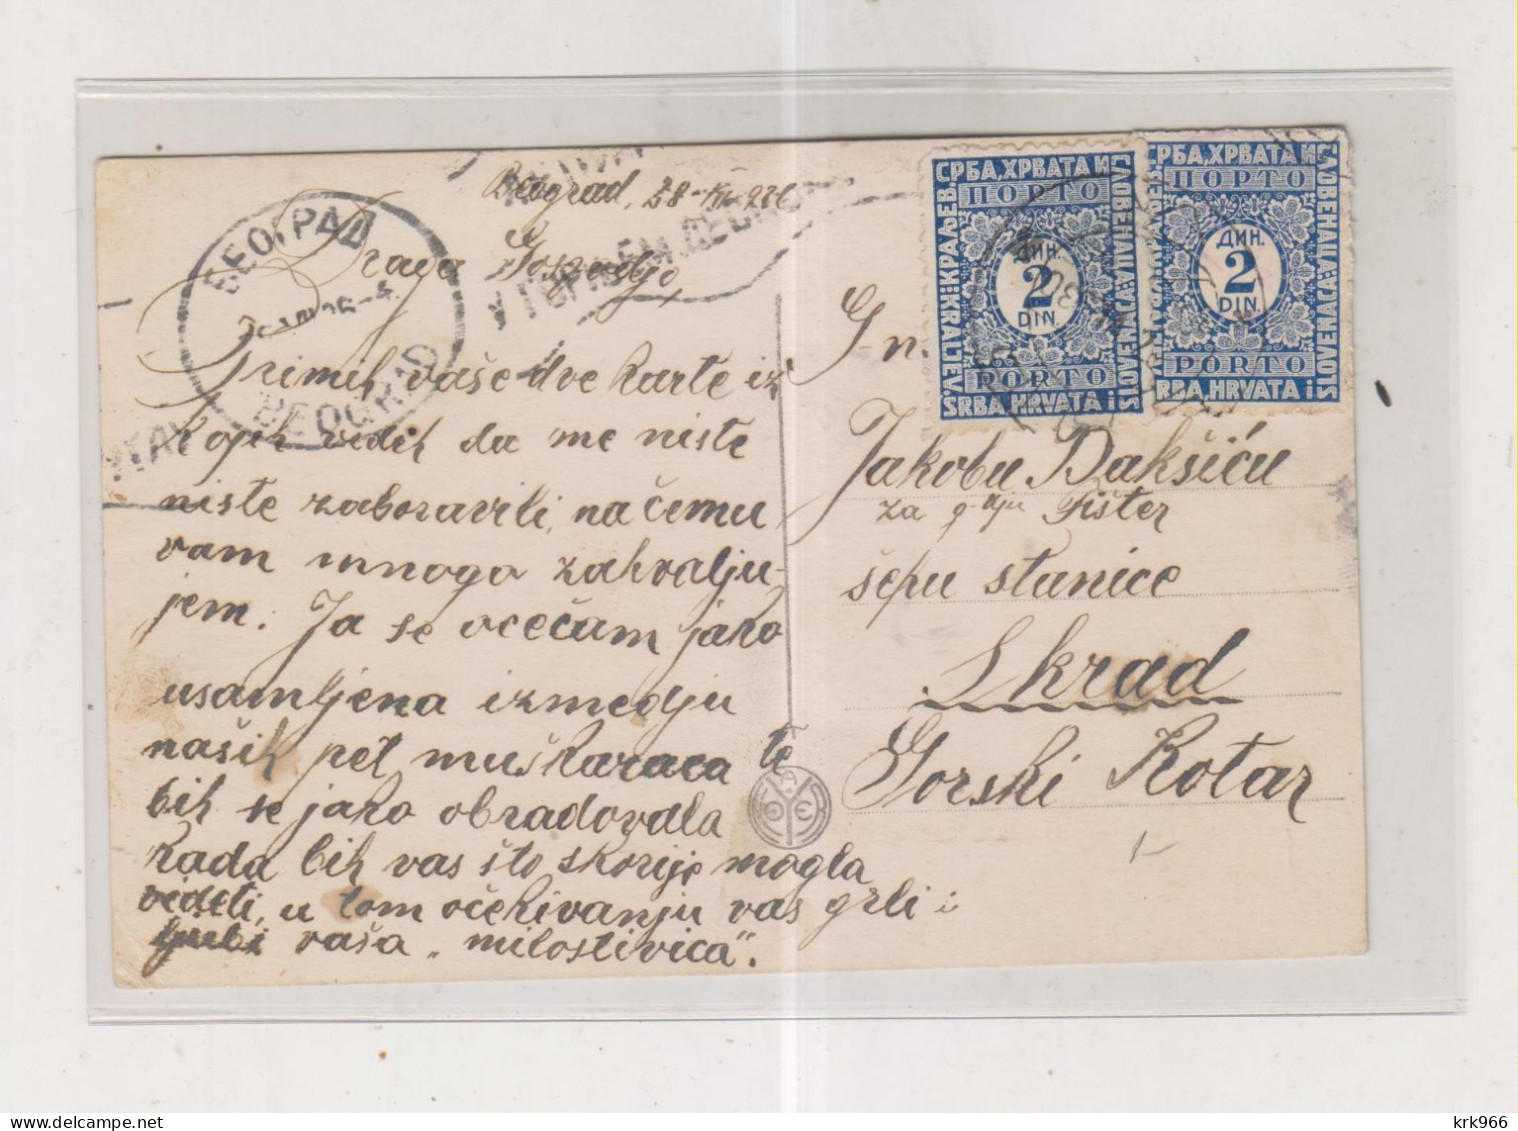 Beograd,
Draga Gospodjo,
Primih vaše dve karte iz
kojih vidih da me niste
niste zaboravili, na čemu
vam mnogo zahvalju-
jem. Ja se ocećam jako
usamljena izmedju
naših pet muškaraca te
bih se jako obradovala
kada bih vas što skorije mogla
videti, u tom očekivanju vas grli i
ljubi vaša „milostivica".
БЕОГРАД
BEOGRAD
Gn.
Jakobu Dakšiću
za g-dju Fišter
šefu stanice
Skrad
Gorski Kotar
КРАЉЕВ. СРБА, ХРВАТА И СЛОВЕНАЦА
ПОРТО
ДИН.
2
DIN.
PORTO
KRALJEV. SRBA, HRVATA i SLOVENACA
РБА, ХРВАТА И СЛОВЕНАЦА
ПОРТО
ДИН.
2
DIN.
PORTO
RBA, HRVATA i SLOVENACA
krk966